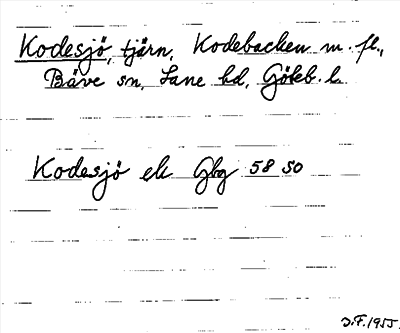 Kodesjö, tjärn, Kodebacken m. fl.,
Bäve sn, Lane hd, Göteb. l.
Kodesjö ek Gbg 58 50
J.F. 1955.